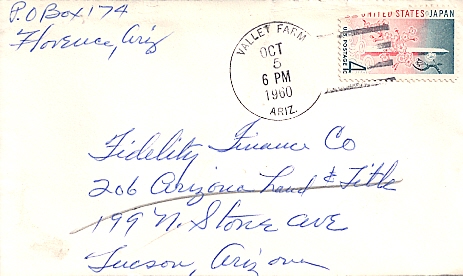 P.O Box 174
Florence, Ariz
VALLET FARM
OCT
5
6 PM
1960
ARIZ.
UNITED STATES-JAPAN
U.S. POSTAGE
4¢
Fidelity Finance Co
206 Arizona Land & Title
199 N. Stone Ave
Tucson, Arizona